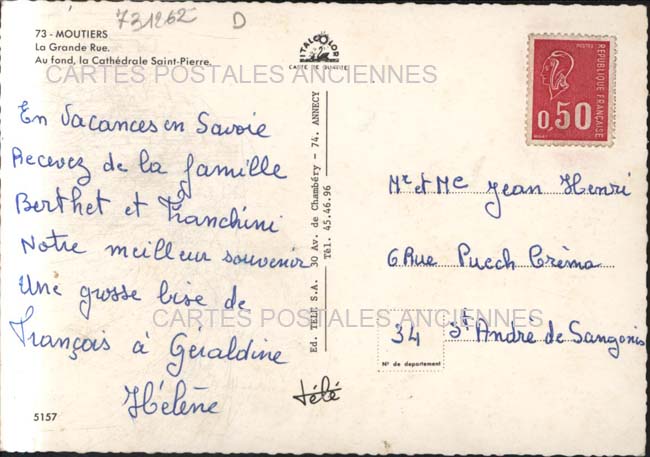 731262 D
73 - MOUTIERS
La Grande Rue.
Au fond, la Cathédrale Saint-Pierre.
ITALCOLOR
CARTE DE QUALITE
CARTES POSTALES ANCIENNES
En Vacances en Savoie
Recevez de la famille
Berthet et Franchini
Notre meilleur souvenir
Une grosse bise de
François à Géraldine
Hélène
5157
Ed. TELE S.A. 30 Av. de Chambéry - 74. ANNECY
Tél. 45.46.96
télé
POSTES
REPUBLIQUE FRANÇAISE
0,50
Mr et Me Jean Henri
6 Rue Puech Crèma
34 St André de Sangonis
N° de departement
CARTES POSTALES ANCIENNES